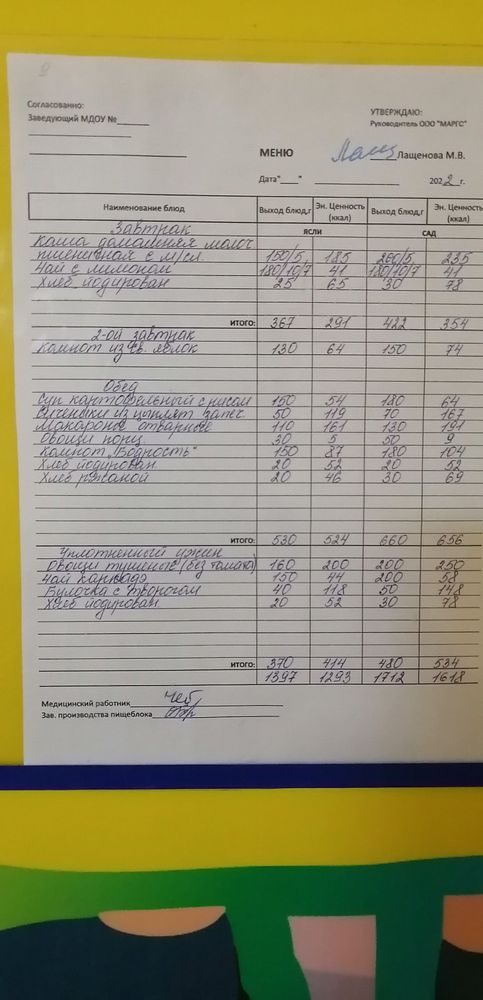 9
Согласованно:
Заведующий МДОУ №______
УТВЕРЖДАЮ:
Руководитель ООО "МАРГС"
МЕНЮ
Лащенова М.В.
Дата"____" 2022 г.
Наименование блюд Выход блюд,г Эн. Ценность (ккал) Выход блюд,г Эн. Ценность (ккал)
ЯСЛИ САД
Завтрак
Каша домашняя молоч
пшеничная с м/сл. 150/5 185 200/5 235
Чай с лимоном 180/10/7 41 180/10/7 41
Хлеб йодирован 25 65 30 78
ИТОГО: 367 291 422 354
2-ой завтрак
Компот из св. яблок 130 64 150 74
Обед
Суп картофельный с рисом 150 54 180 64
из цыплят запеч. 50 119 70 167
Макароны отварные 110 161 130 191
Овощи порц. 30 5 50 9
Компот „Бодрость" 150 87 180 104
Хлеб йодирован 20 52 20 52
Хлеб ржаной 20 46 30 69
ИТОГО: 530 524 660 656
Уплотненный ужин
Овощи тушеные (без томата) 160 200 200 250
Чай каркадэ 150 44 200 58
Булочка с творогом 40 118 50 148
Хлеб йодирован 20 52 30 78
ИТОГО: 370 414 480 534
1397 1293 1712 1618
Медицинский работник
Зав. производства пищеблока